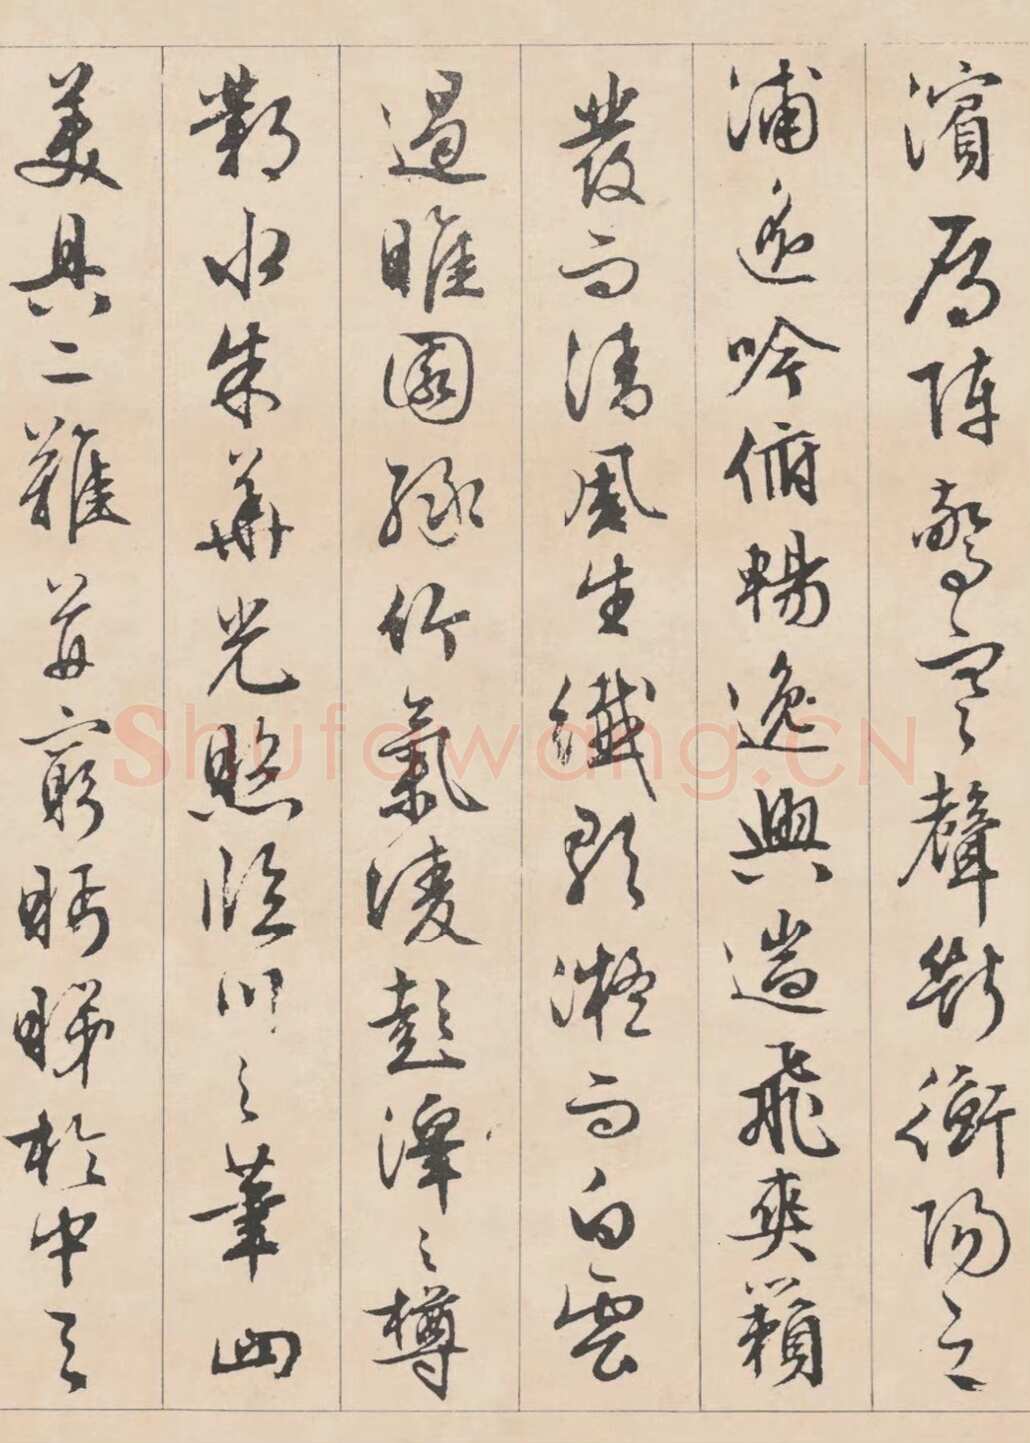 濱鴈陣驚寒聲斷衡陽之
浦遙吟俯暢逸興遄飛爽籟
發而清風生纖歌凝而白雲
遏睢園綠竹氣淩彭澤之樽
鄴水朱華光照臨川之筆四
美具二難并窮眄睇於中天
Shufawang.CN